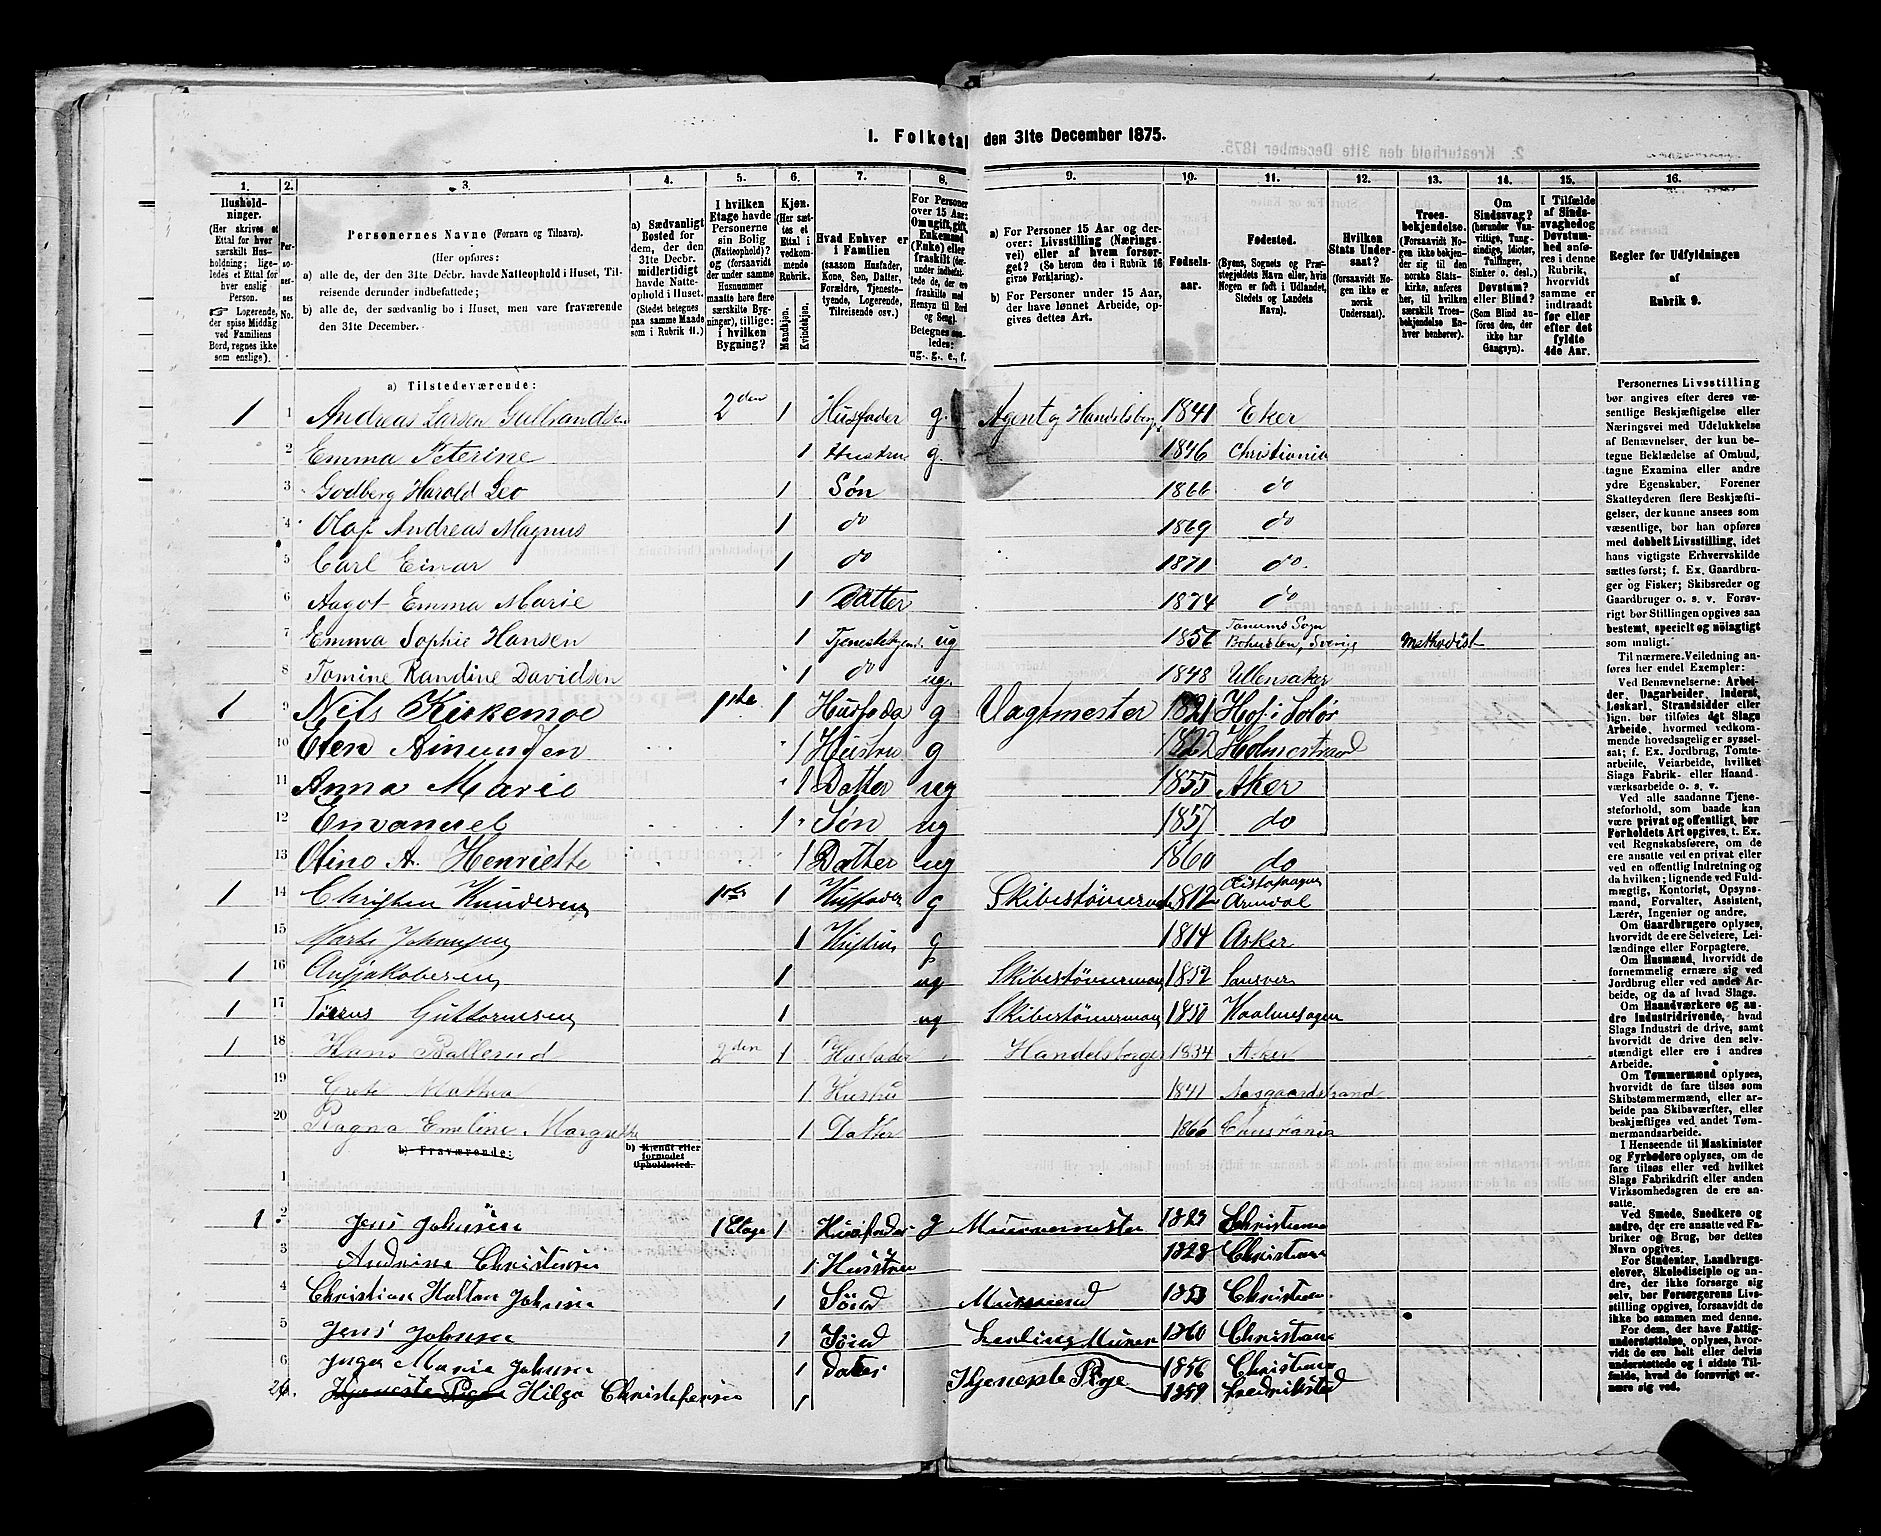 1. Folketal den 31te December 1875.
1. 2. 3. 4. 5. 6. 7. 8. 9. 10. 11. 12. 13. 14. 15. 16.
Husholdninger. (Her skrives et Ettal for hver særskilt Husholdning; ligeledes et Ettal for hver enslig Person. ☞ Logerende, der spise Middag ved Familiens Bord, regnes ikke som enslige).
Personernes No.
Personernes Navne (Fornavn og Tilnavn).
(Her opføres:
a) alle de, der den 31te Decbr. havde Natteophold i Huset, Tilreisende derunder indbefattede;
b) alle de, der sædvanlig bo i Huset, men vare fraværende den 31te December.
a) Sædvanligt Bosted for dem, der den 31te Decbr. midlertidigt havde Natteophold i Huset. (Stedet betegnes paa samme Maade som i Rubrik 11.)
I hvilken Etage havde Personerne sin Bolig (Natteophold)? og (forsaavidt der under samme Husnummer maatte høre flere særskilte Bygninger), tillige: i hvilken Bygning?
Kjøn. (Her sættes et Ettal i vedkommende Rubrik.
Mandkjøn. Kvindekjøn.
Hvad Enhver er i Familien (saasom Husfader, Kone, Søn, Datter, Forældre, Tjenestetyende, Logerende, Tilreisende osv.)
For Personer over 15 Aar: Om ugift, gift, Enkemand (Enke) eller fraskilt (derunder indbefattede de, der ere fraskilte med Hensyn til Bord og Seng). Betegnes saaledes: ug., g., e., f.
a) For Personer 15 Aar og derover: Livsstilling (Næringsvei) eller af hvem forsørget? (Se herom den i Rubrik 16 givne Forklaring).
b) For Personer under 15 Aar, der have lønnet Arbeide, opgives dettes Art.
Fødselsaar.
Fødested. (Byens, Sognets og Præstegjeldets Navn eller, hvis Nogen er født i Udlandet, Stedets og Landets Navn).
Hvilken Stats Undersaat? (forsaavidt Nogen ikke er norsk Undersaat).
Troesbekjendelse. (Forsaavidt Nogen ikke bekjender sig til den norske Statskirke, anføres her, til hvilken særskilt Troesbekjendelse Enhver henhører).
Om Sindssvag? (herunder Vanvittige, Tungsindige, Idioter, Tullinger, Sinker o. desl.) Døvstum? eller Blind? (Som Blind anføres den, der ikke har Gangsyn).
I Tilfælde af Sindssvaghed og Døvstumhed anføres i denne Rubrik, hvorvidt samme er indtraadt før eller efter det fyldte 4de Aar.
Regler for Udfyldningen af Rubrik 9.
a) Tilstedeværende:
1 1 Andreas Larsen Gulbrandsen 2den 1 Husfader g. Agent og Handelsborg. 1841 Eker
2 Emma Peterine 1 Hustru g. 1846 Christiania
3 Godberg Harold Leo 1 Søn 1866 do
4 Olaf Andreas Magnus 1 do 1869 do
5 Carl Einar 1 do 1871 do.
6 Aagot Emma Marie 1 Datter 1874 do
7 Emma Sophie Hansen 1 ug Tanums Sogn Bohuslen, Sverige Methodist
8 Tomine Randine Davidsen 1 do ug. 1848 Ullensaker
1 9 Nils Kirkemoe 1ste 1 Husfader g Vagtmester 1821 Hof i Solør
10 Elen Amundsen 1 Hustru g 1822 Holmestrand
11 Anna Marie 1 Datter ug 1855 Aker
12 Emanuel 1 Søn ug 1857 do
13 A. Henriette 1 Datter ug 1860 do
1 14 Christen Knudsen 1ste 1 Husfader g Skibstømermand 1812 Arendal
15 Marte Johansen 1 Hustru g 1814 Asker
1 16 1 ug Skibstømermand 1852
1 17 Guttormsen 1 ug Skibstømermand 1850
1 18 Hans Ballerud 2den 1 Husfader Handelsborger 1834 Aker
19 Grete Mathea 1 Hustru 1841 Aasgaardstrand
20 Ragna Emeline Margrethe 1 Datter 1866 Christiania
b) Fraværende: b) Kjendt eller formodet Opholdssted.
1
1 2 Jens Johnsen 1 Etage 1 Husfader g Muurermester 1823 Christiania
3 Andrine Christensen 1 Hustru 1828 Christiania
4 Christian Holtan Johnsen 1 Sönd Muursvend 1853 Christiania
5 Jens Johnsen 1 Sönd Lerling Murer 1860 Christiania
6 Inga Marie Johnsen 1 Dater 1856 Christiania
26. Tjeneste Pige Hilga Christofersen 1 Tjeneste Pige 1859 Fredrikstad
Personernes Livsstilling bør angives efter deres væsentlige Beskjæftigelse eller Næringsvei med Udelukkelse af Benævnelser, der kun betegne Beklædelse af Ombud, tagne Examina eller andre ydre Egenskaber. Forener Skatteyderen flere Beskjæftigelser, der kunne ansees som væsentlige, bør han opføres med dobbelt Livsstilling, idet hans vigtigste Erhvervskilde sættes først; f. Ex. Gaardbruger og Fisker; Skibsreder og Gaardbruger o. s. v. Forøvrigt bør Stillingen opgives saa bestemt, specielt og nøiagtigt som muligt.
Til nærmere Veiledning anføres her endel Exempler:
Ved Benævnelserne: Arbeider, Dagarbeider, Inderst, Løskarl, Strandsidder eller lign. bør tilføies det Slags Arbeide, hvormed vedkommende hovedsagelig er sysselsat; f. Ex. Jordbrug, Tomtearbeide, Veiarbeide, hvilket Slags Fabrik- eller Haandværksarbeide o. s. v.
Ved alle saadanne Tjenesteforhold, som baade kan være privat og offentligt, bør Forholdets Art opgives, t. Ex. ved Regnskabsførere, om de ere ansatte ved en privat eller ved en offentlig Indretning og da hvilken; lignende ved Fuldmægtig, Kontorist, Opsynsmand, Forvalter, Assistent, Lærer, Ingeniør og andre.
Om Gaardbrugere oplyses, hvorvidt de ere Selveiere, Leilændinge eller Forpagtere.
Om Husmænd, hvorvidt de fornemmelig ernære sig ved Jordbrug eller ved andet Arbeide, og da af hvad Slags.
Om Haandværkere og andre Industridrivende, hvad Slags Industri de drive, samt hvorvidt de drive den selvstændigt eller ere i andres Arbeide.
Om Tømmermænd oplyses, hvorvidt de fare tilsøs som Skibstømmermænd, eller arbeide paa Skibsværfter, eller beskjæftiges ved andet Tømmermandsarbeide.
I Henseende til Maskinister og Fyrbødere oplyses, om de fare tilsøs eller ved hvilket Slags Fabrikdrift eller anden Virksomhedsgren de ere ansatte.
Ved Smede, Snedkere og andre, der ere ansatte ved Fabriker og Brug, bør dettes Navn opgives.
For Studenter, Landbrugselever, Skoledisciple og andre, der ikke forsørge sig selv, bør Forsørgerens Livsstilling opgives, forsaavidt de ikke bo sammen med denne.
For dem, der have Fattigunderstøttelse, oplyses, hvorvidt de ere helt eller delvis understøttede og i sidste Tilfælde, hvad de forøvrigt ernære sig ved.